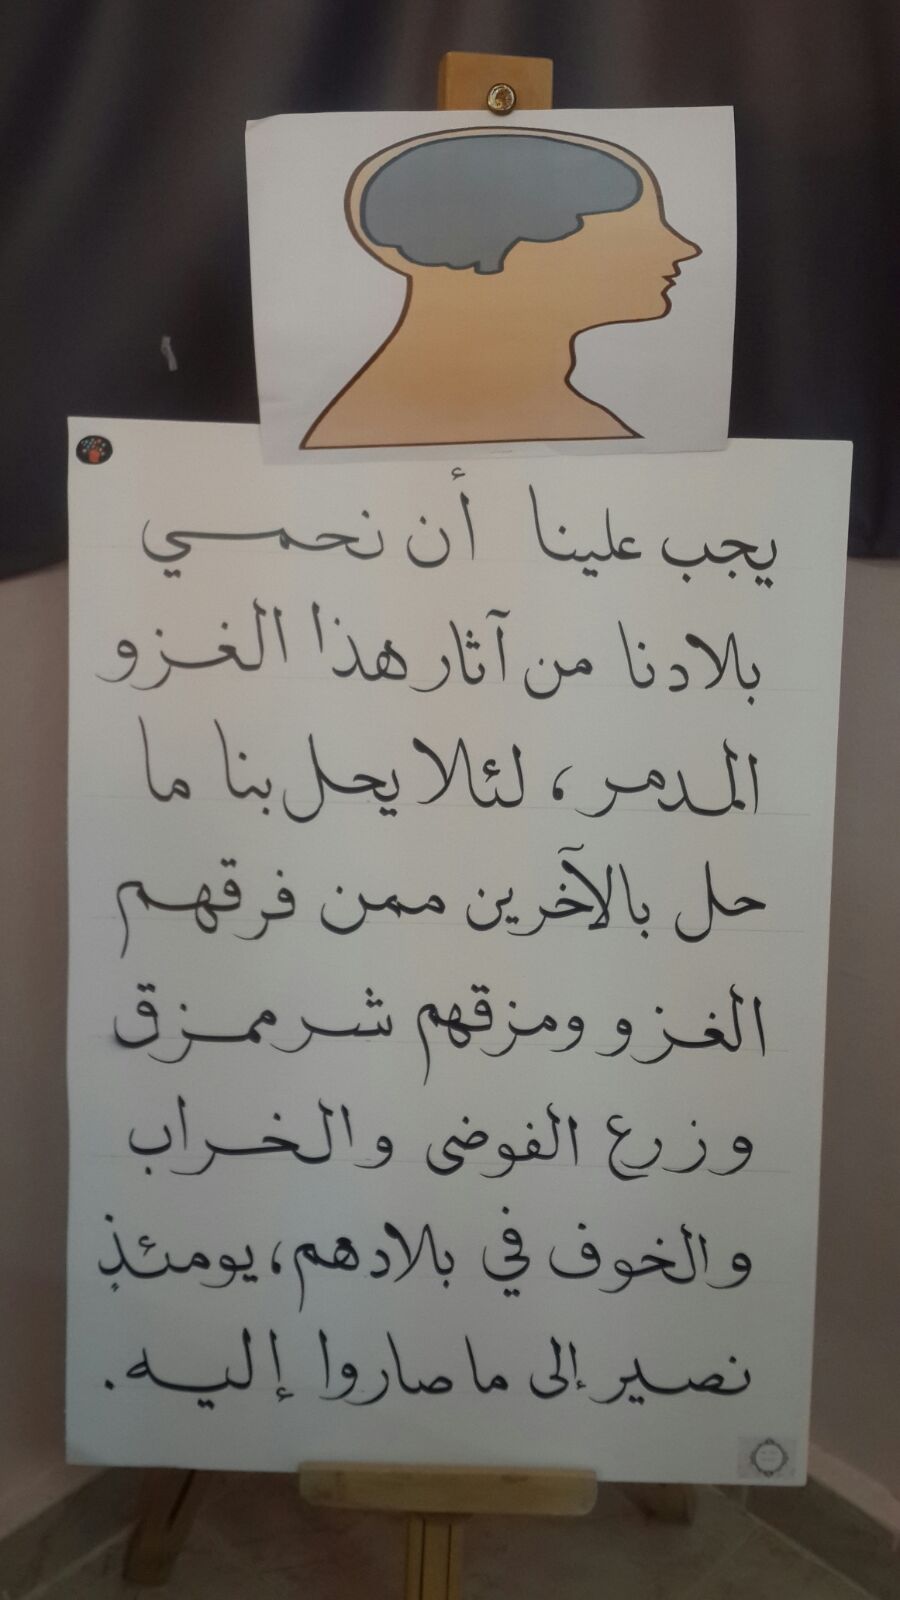 يجب علينا أن نحمي
بلادنا من آثار هذا الغزو
المدمر، لئلا يحل بنا ما
حل بالآخرين ممن فرقهم
الغزو ومزقهم شر ممزق
وزرع الفوضى والخراب
والخوف في بلادهم، يومئذٍ
نصير إلى ما صاروا إليه.